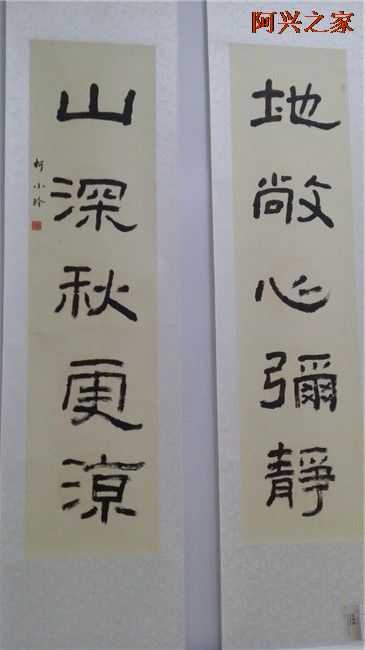 阿兴之家
地敞心彌靜
山深秋更涼
柯小玲